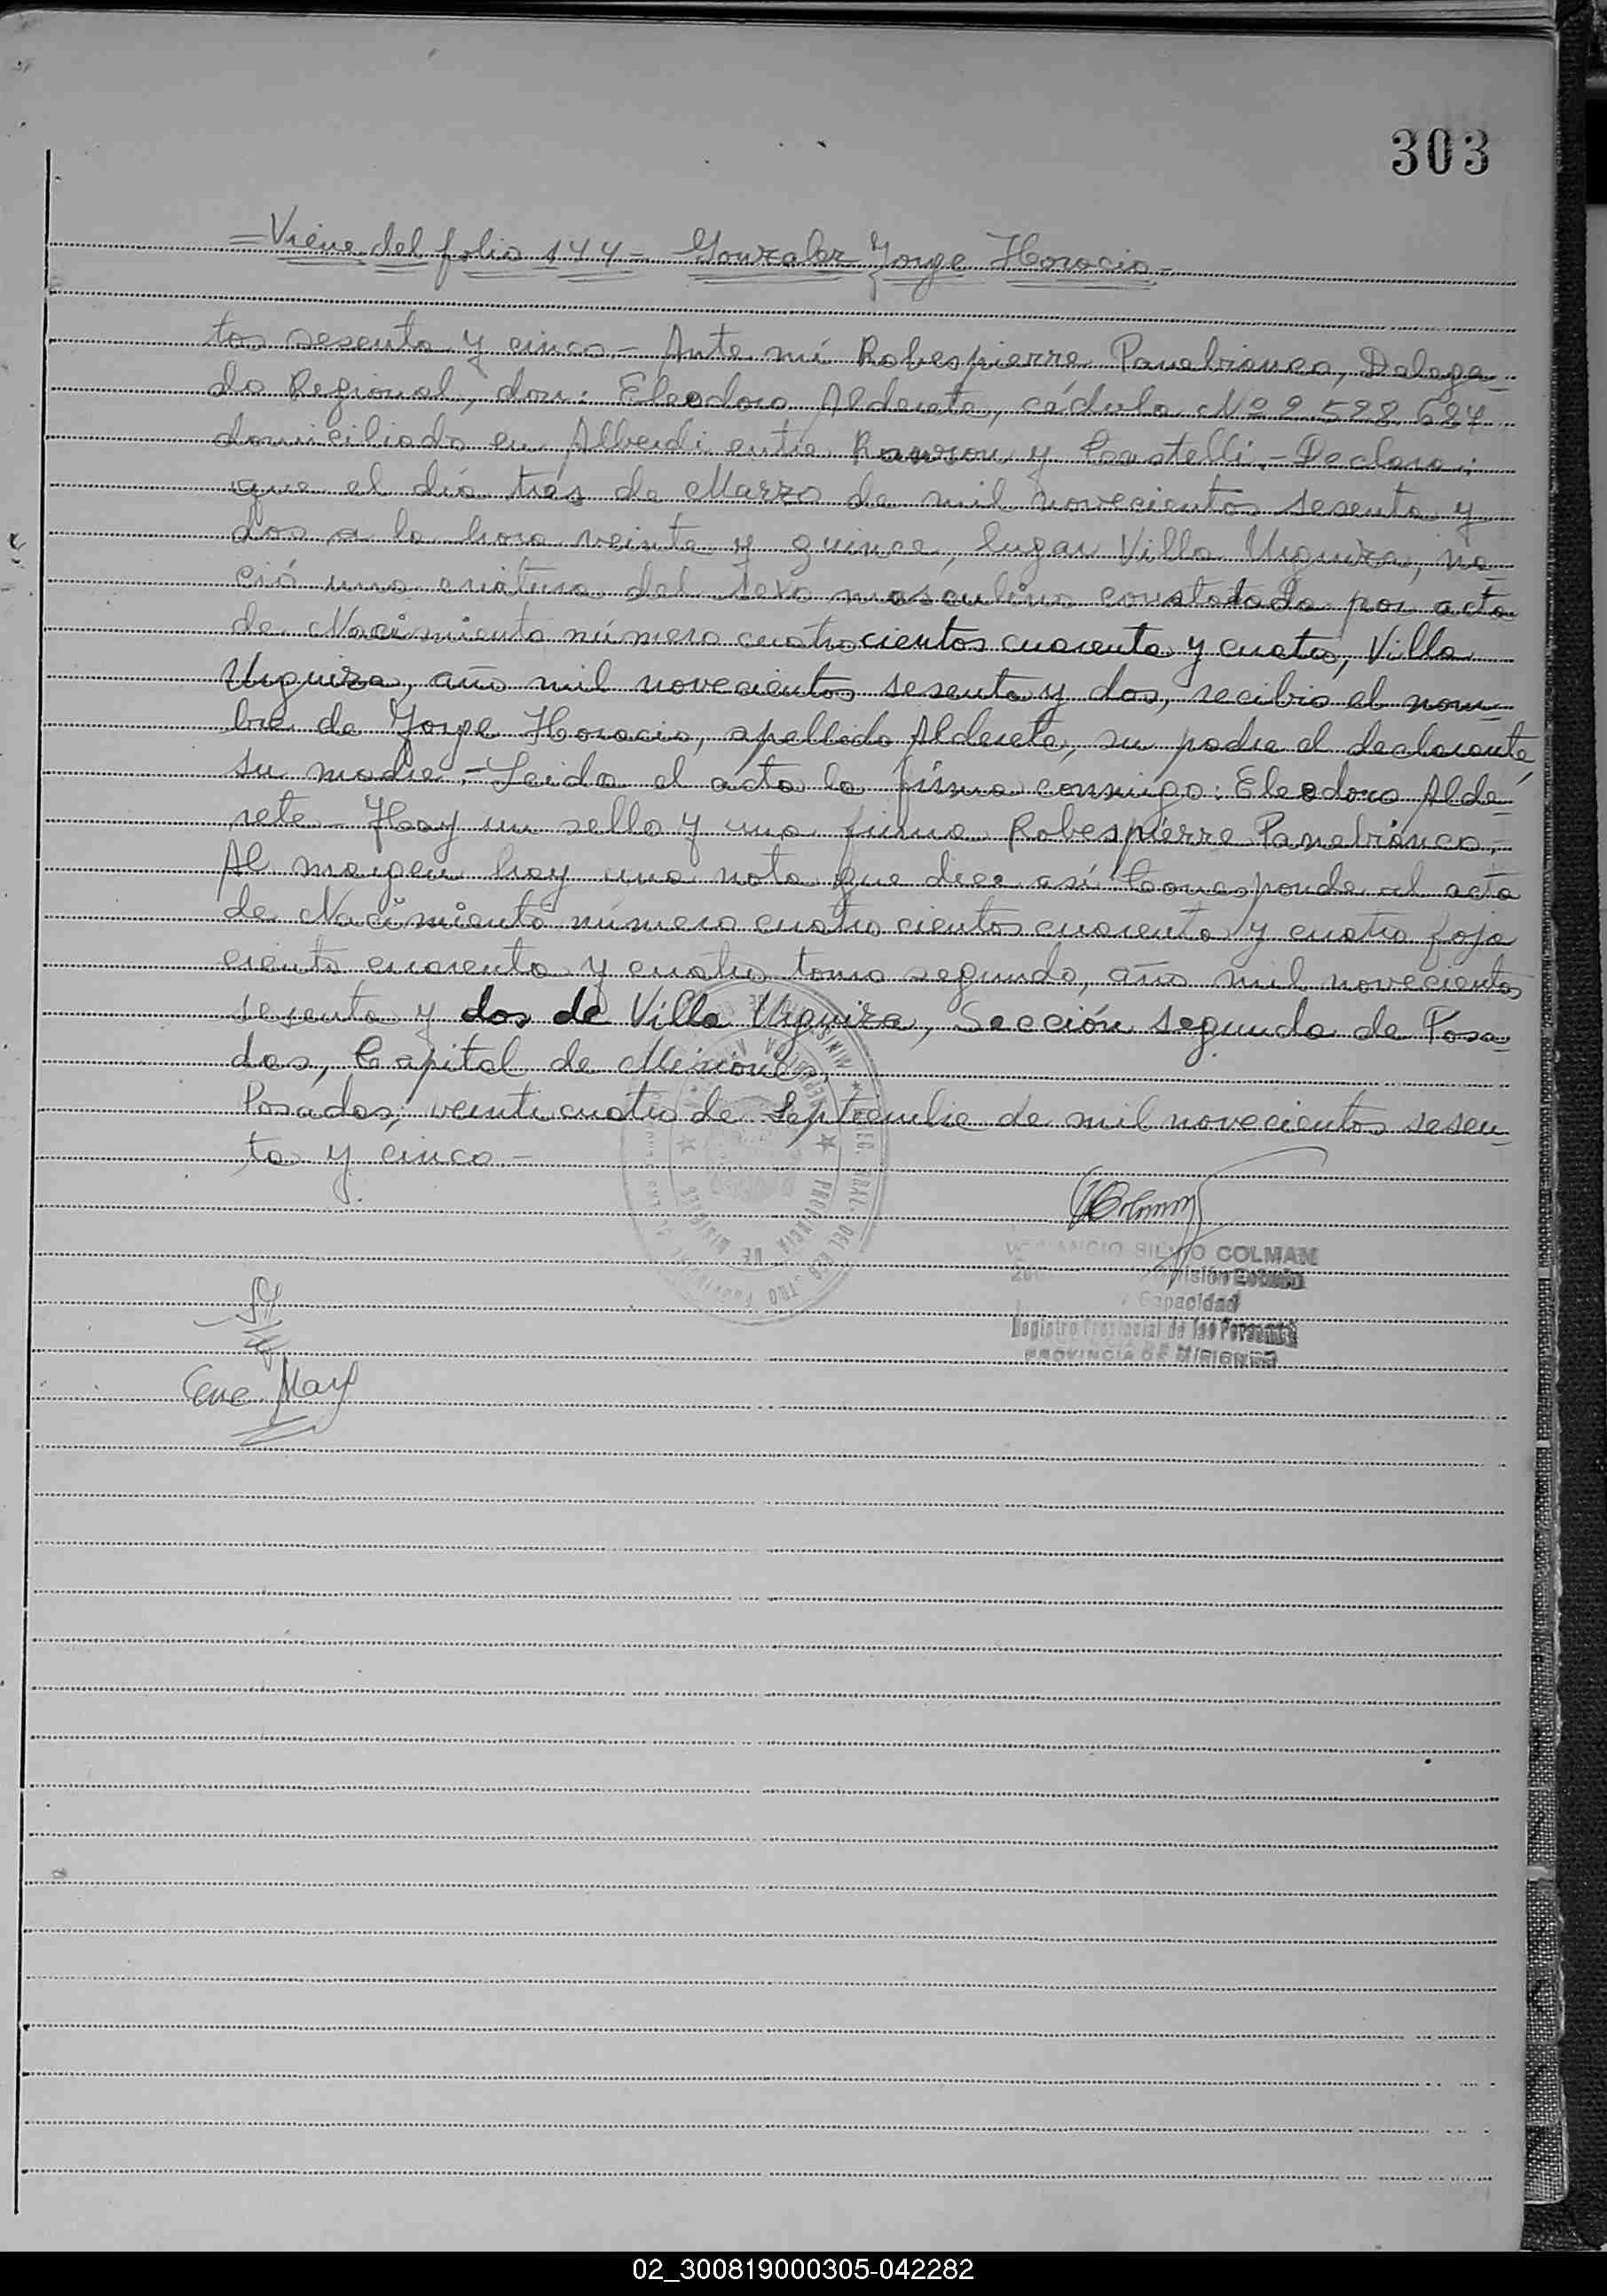 303
=Viene del folio 144- Gonzalez Jorge Horacio-
tos sesenta y cinco.- Ante mí Robespierre Panebianco, Delega-
do Regional, don: Eleodoro Alderete, cédula Nº 2.528.684
domiciliado en Alberdi entre Rawson y Castelli.- Declara:
que el día tres de Marzo de mil novecientos sesenta y
dos a la hora veinte y quince, lugar Villa Urquiza, na-
ció una criatura del sexo masculino constatada por acta
de Nacimiento número cuatrocientos cuarenta y cuatro, Villa
Urquiza, año mil novecientos sesenta y dos, recibio el nom-
bre de Jorge Horacio, apellido Alderete, su padre el declarante,
su madre.- Leida el acta la firma conmigo: Eleodoro Alde-
rete- Hay un sello y una firma Robespierre Panebianco.-
Al margen hay una nota que dice así: Corresponde al acta
de Nacimiento número cuatrocientos cuarenta y cuatro foja
ciento cuarenta y cuatro tomo segundo, año mil novecientos
sesenta y dos de Villa Urquiza, Sección segunda de Posa-
das, Capital de Misiones.
Posadas, veinticuatro de Septiembre de mil novecientos sesen-
ta y cinco.-
SILVIO COLMAN
División
Capacidad
Registro Provincial de las Personas
PROVINCIA DE MISIONES
PROVINCIA DE MISIONES
02_300819000305-042282